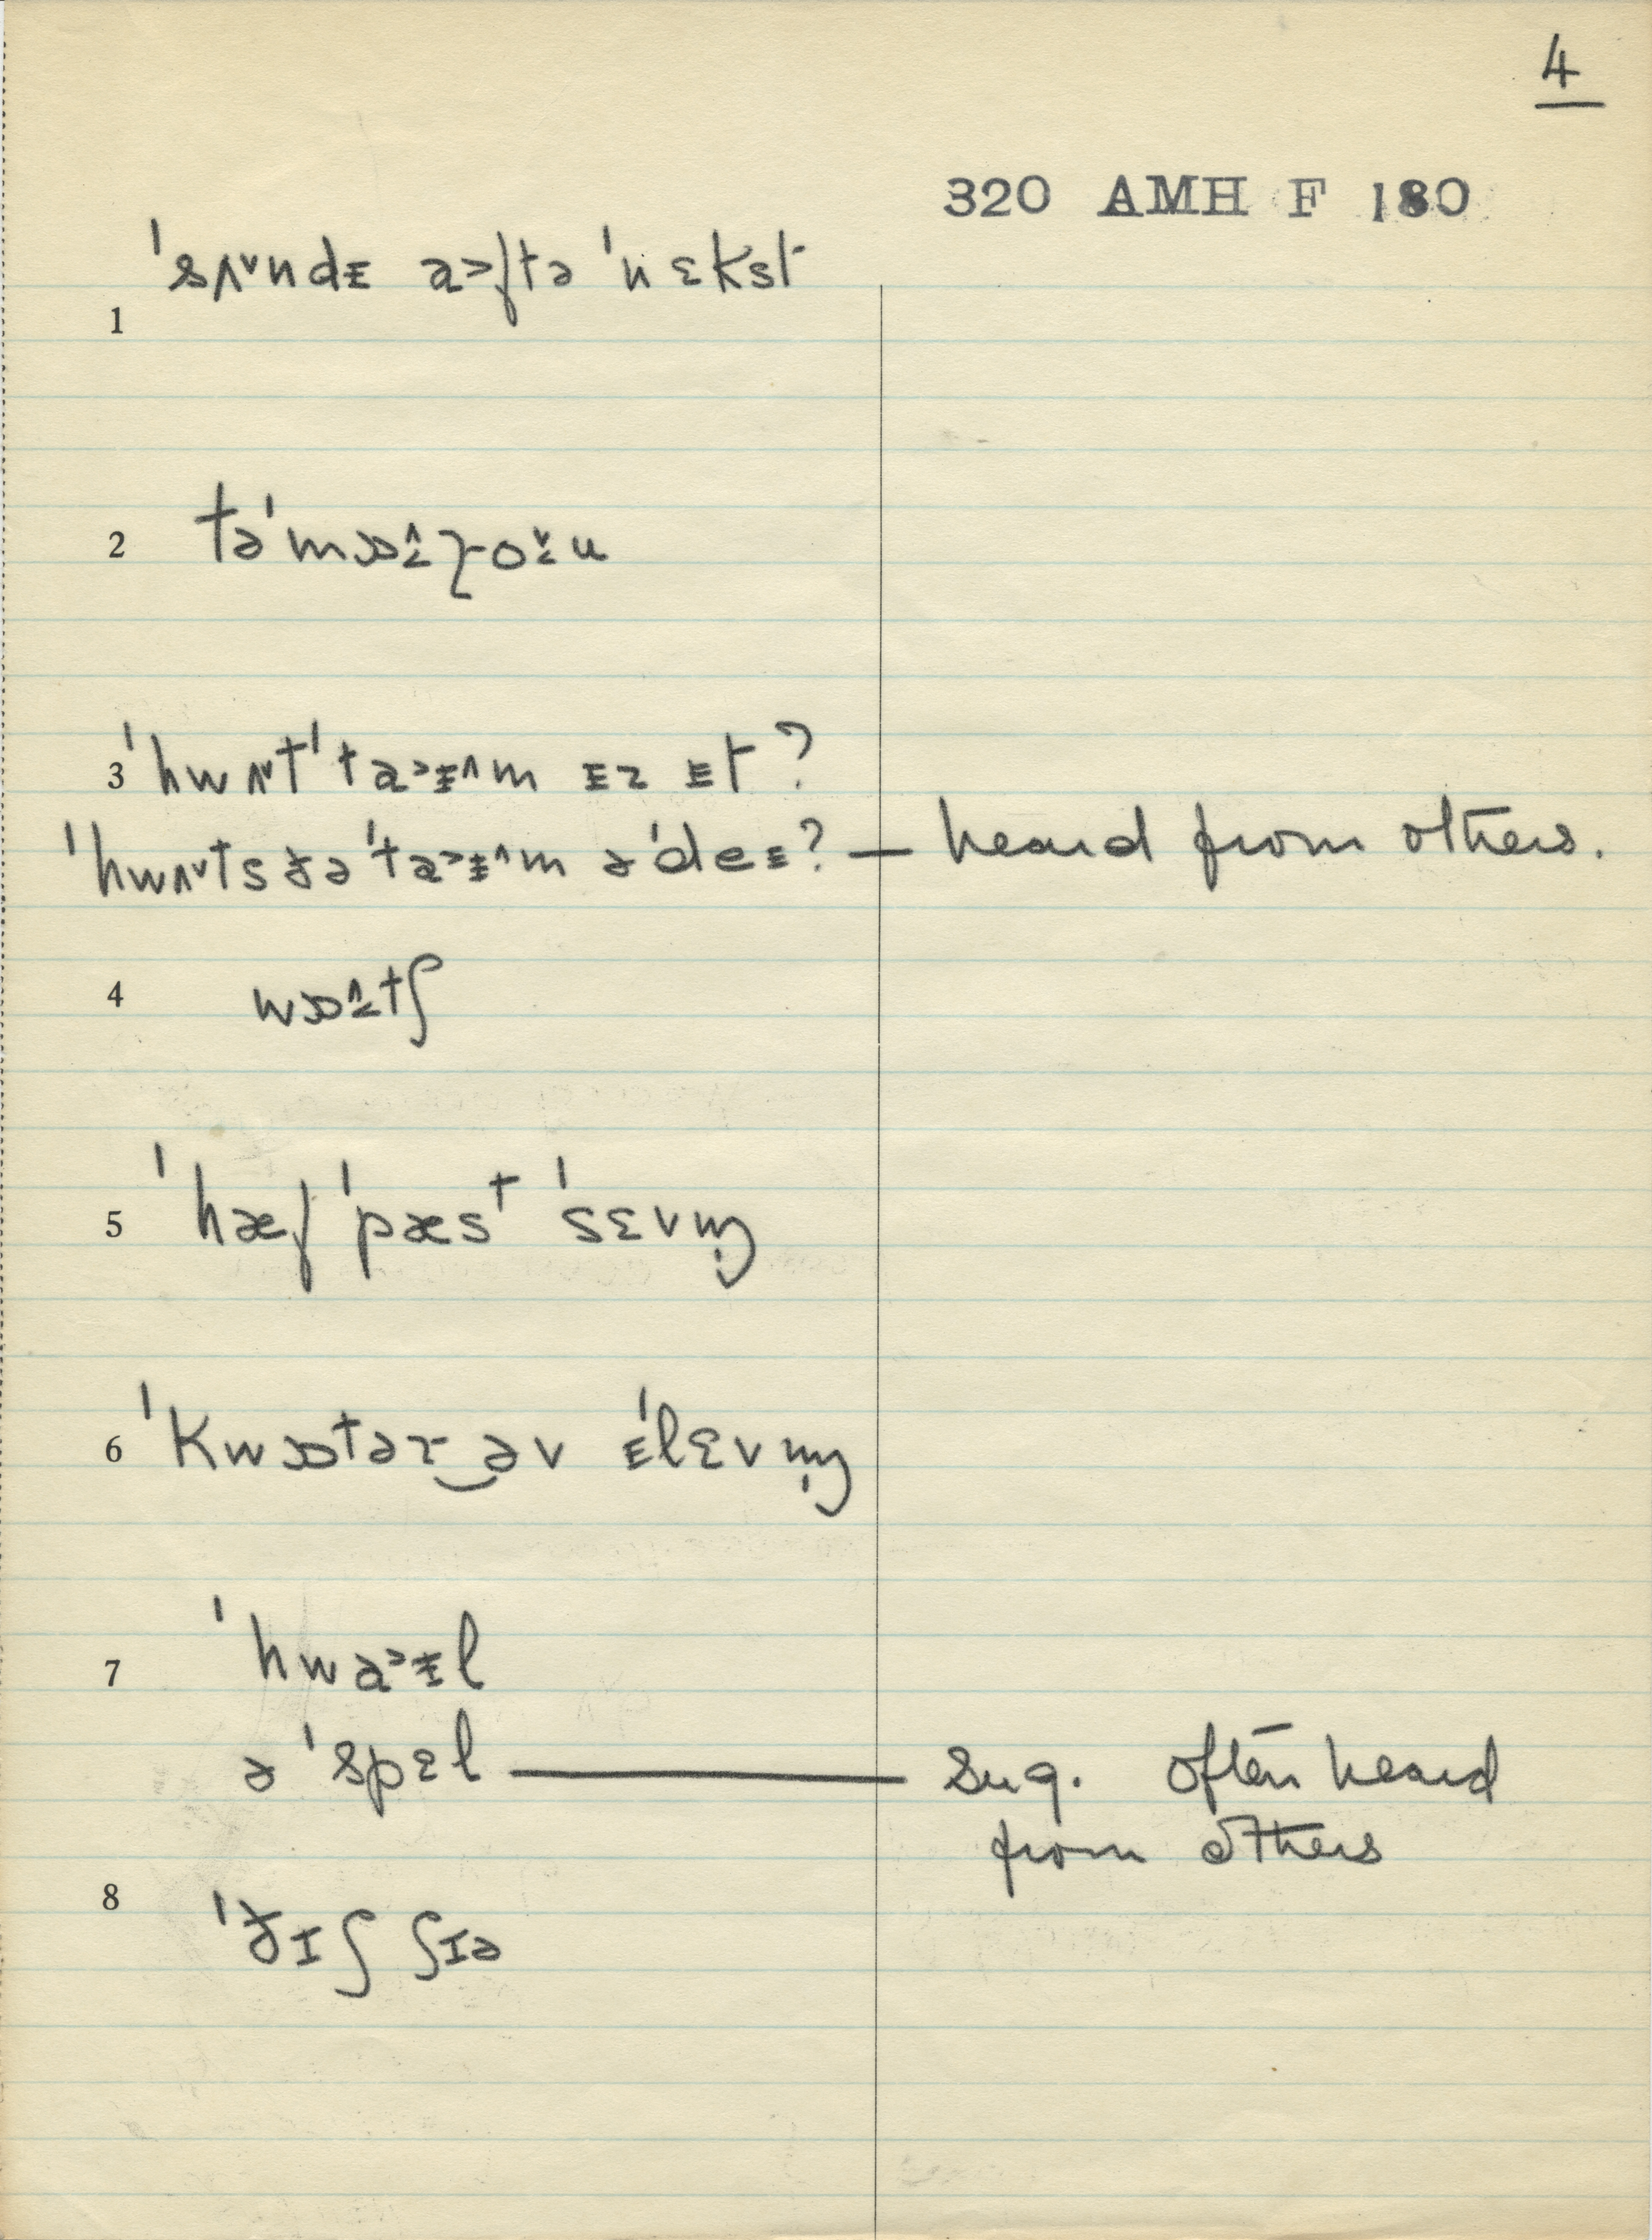 4
320 AMH F 180
1 ˈsʌ˅ndᵻ a˃ftə ˈnɛkst
2 təˈmɒ˄ɾo˅u
3 ˈhwʌ˅t ˈta˃ᵻ˄m ᵻz ᵻt?
ˈhwʌ˅ts ðə ˈta˃ᵻ˄m əˈdeᵻ? — heard from others.
4 wɒ˄tʃ
5 ˈhæf ˈpæst ˈsɛvm̩
6 ˈkwɒtər‿əv ᵻˈlɛvm̩
7 ˈhwa˃ᵻl
ə ˈspɛl — sug. often heard
from others
8 ˈðɪʃ ʃɪə